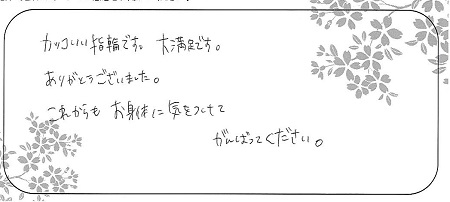 カッコいい指輪です。大満足です。
ありがとうございました。
これからも お身体に気をつけて
がんばってください。